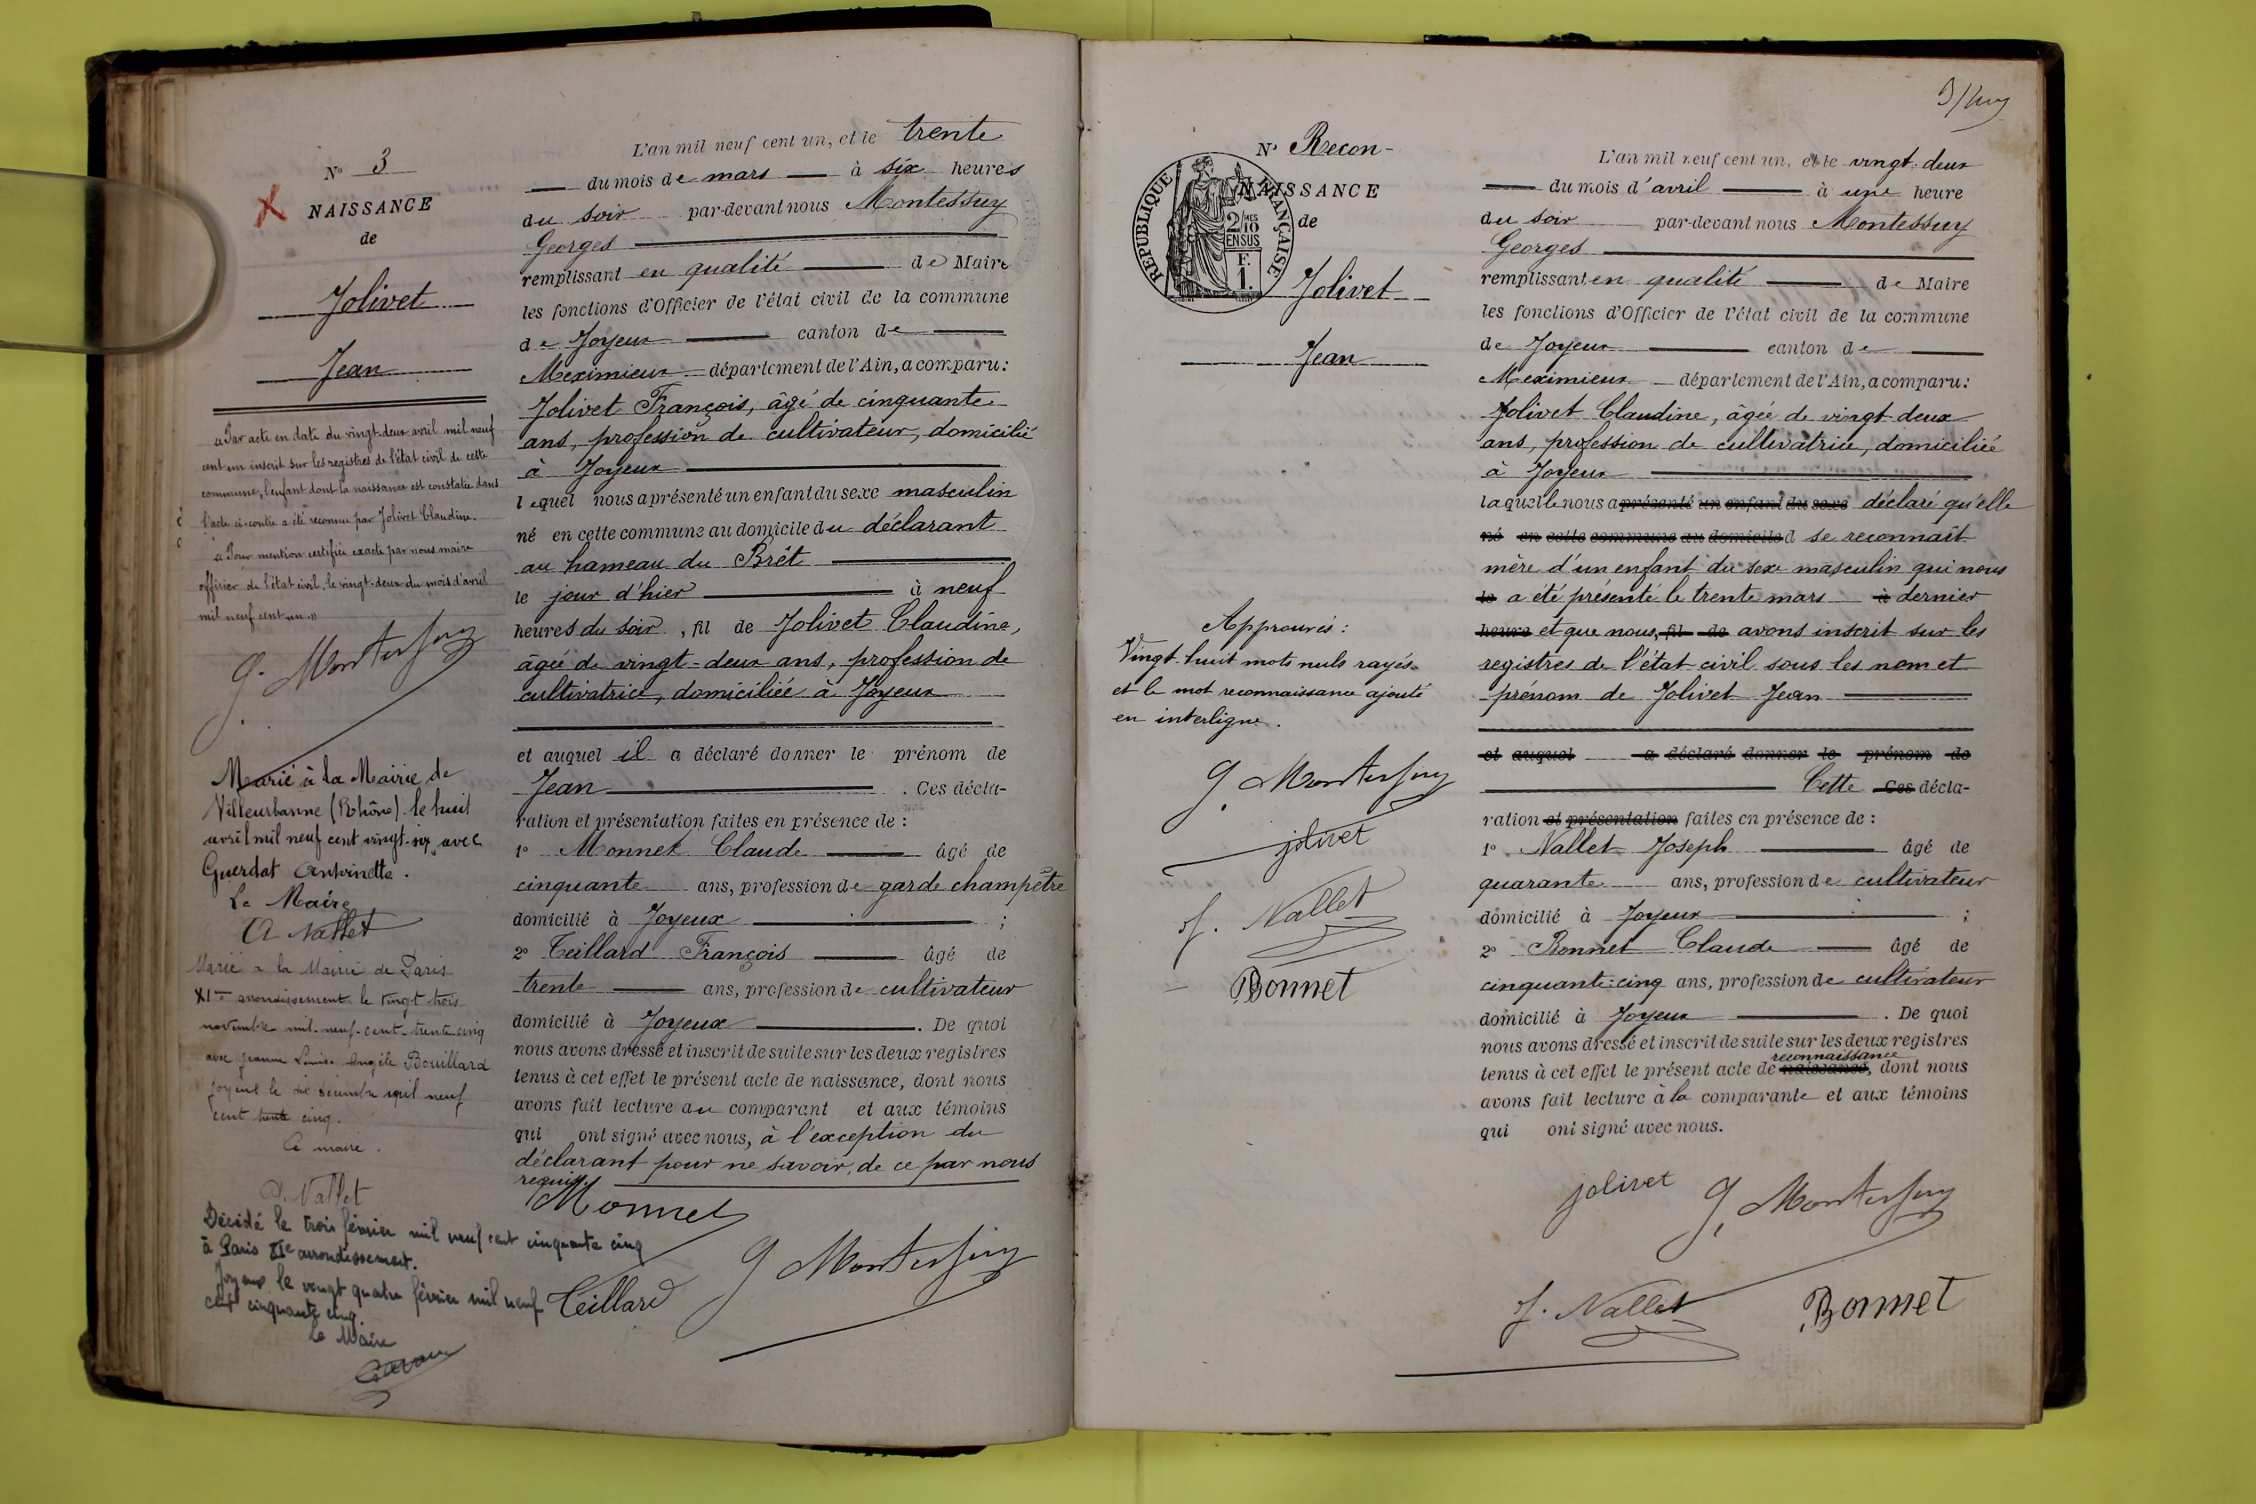 N° 3
NAISSANCE
de
Jolivet
Jean
« Par acte en date du vingt-deux avril mil neuf
cent un inscrit sur les registres de l'état civil de cette
commune, l'enfant dont la naissance est constatée dans
l'acte ci-contre a été reconnu par Jolivet Claudine.
« Pour mention certifiée exacte par nous maire
officier de l'état civil, le vingt-deux du mois d'avril
mil neuf cent un. »
G. Montessuy
Marié à la Mairie de
Villeurbanne (Rhône) le huit
avril mil neuf cent vingt-six avec
Guerdat Antoinette.
Le Maire
A Nallet
Marié a la Mairie de Paris
XIme arrondissement le vingt trois
novembre mil-neuf-cent-trente cinq
avec Jeanne Louise Angèle Bouillard
Joyeux le dix décembre mil neuf
cent trente cinq.
Le maire.
A. Nallet
Décédé le trois février mil neuf cent cinquante cinq
à Paris XIe arrondissement.
Joyeux le vingt quatre février mil neuf
cent cinquante cinq.
Le Maire
L'an mil neuf cent un, et le trente
du mois de mars à six heures
du soir par-devant nous Montessuy
Georges
remplissant en qualité de Maire
les fonctions d'Officier de l'état civil de la commune
de Joyeux canton de
Meximieux département de l'Ain, a comparu:
Jolivet François, âgé de cinquante
ans, profession de cultivateur, domicilié
à Joyeux
lequel nous a présenté un enfant du sexe masculin
né en cette commune au domicile du déclarant
au hameau du Brêt
le jour d'hier à neuf
heures du soir, fil de Jolivet Claudine,
âgée de vingt-deux ans, profession de
cultivatrice, domiciliée à Joyeux
et auquel il a déclaré donner le prénom de
Jean . Ces décla-
ration et présentation faites en présence de :
1° Monnet Claude âgé de
cinquante ans, profession de garde champêtre
domicilié à Joyeux ;
2° Teillard François âgé de
trente ans, profession de cultivateur
domicilié à Joyeux . De quoi
nous avons dressé et inscrit de suite sur les deux registres
tenus à cet effet le présent acte de naissance, dont nous
avons fait lecture au comparant et aux témoins
qui ont signé avec nous, à l'exception du
déclarant pour ne savoir, de ce par nous
requis.
Monnet
G Montessuy
Teillard
N° Recon-
NAISSANCE
de
RÉPUBLIQUE FRANÇAISE
2/10 MES
EN SUS
F.
1.
Jolivet
Jean
Approuvés :
Vingt-huit mots nuls rayés
et le mot reconnaissance ajouté
en interligne.
G. Montessuy
jolivet
J. Nallet
Bonnet
L'an mil neuf cent un, et le vingt-deux
du mois d'avril à une heure
du soir par-devant nous Montessuy
Georges
remplissant en qualité de Maire
les fonctions d'Officier de l'état civil de la commune
de Joyeux canton de
Meximieux département de l'Ain, a comparu:
Jolivet Claudine, âgée de vingt-deux
ans, profession de cultivatrice, domiciliée
à Joyeux
laquelle nous a présenté un enfant du sexe déclaré qu'elle
né en cette commune au domicile d se reconnaît
mère d'un enfant du sexe masculin qui nous
le a été présenté le trente mars à dernier
heure et que nous, fil de avons inscrit sur les
registres de l'état civil sous les nom et
prénom de Jolivet Jean
et auquel a déclaré donner le prénom de
Cette Ces décla-
ration et présentation faites en présence de :
1° Nallet Joseph âgé de
quarante ans, profession de cultivateur
domicilié à Joyeux ;
2° Bonnet Claude âgé de
cinquante-cinq ans, profession de cultivateur
domicilié à Joyeux . De quoi
nous avons dressé et inscrit de suite sur les deux registres
reconnaissance
tenus à cet effet le présent acte de naissance, dont nous
avons fait lecture à la comparante et aux témoins
qui ont signé avec nous.
jolivet
G. Montessuy
J. Nallet
Bonnet